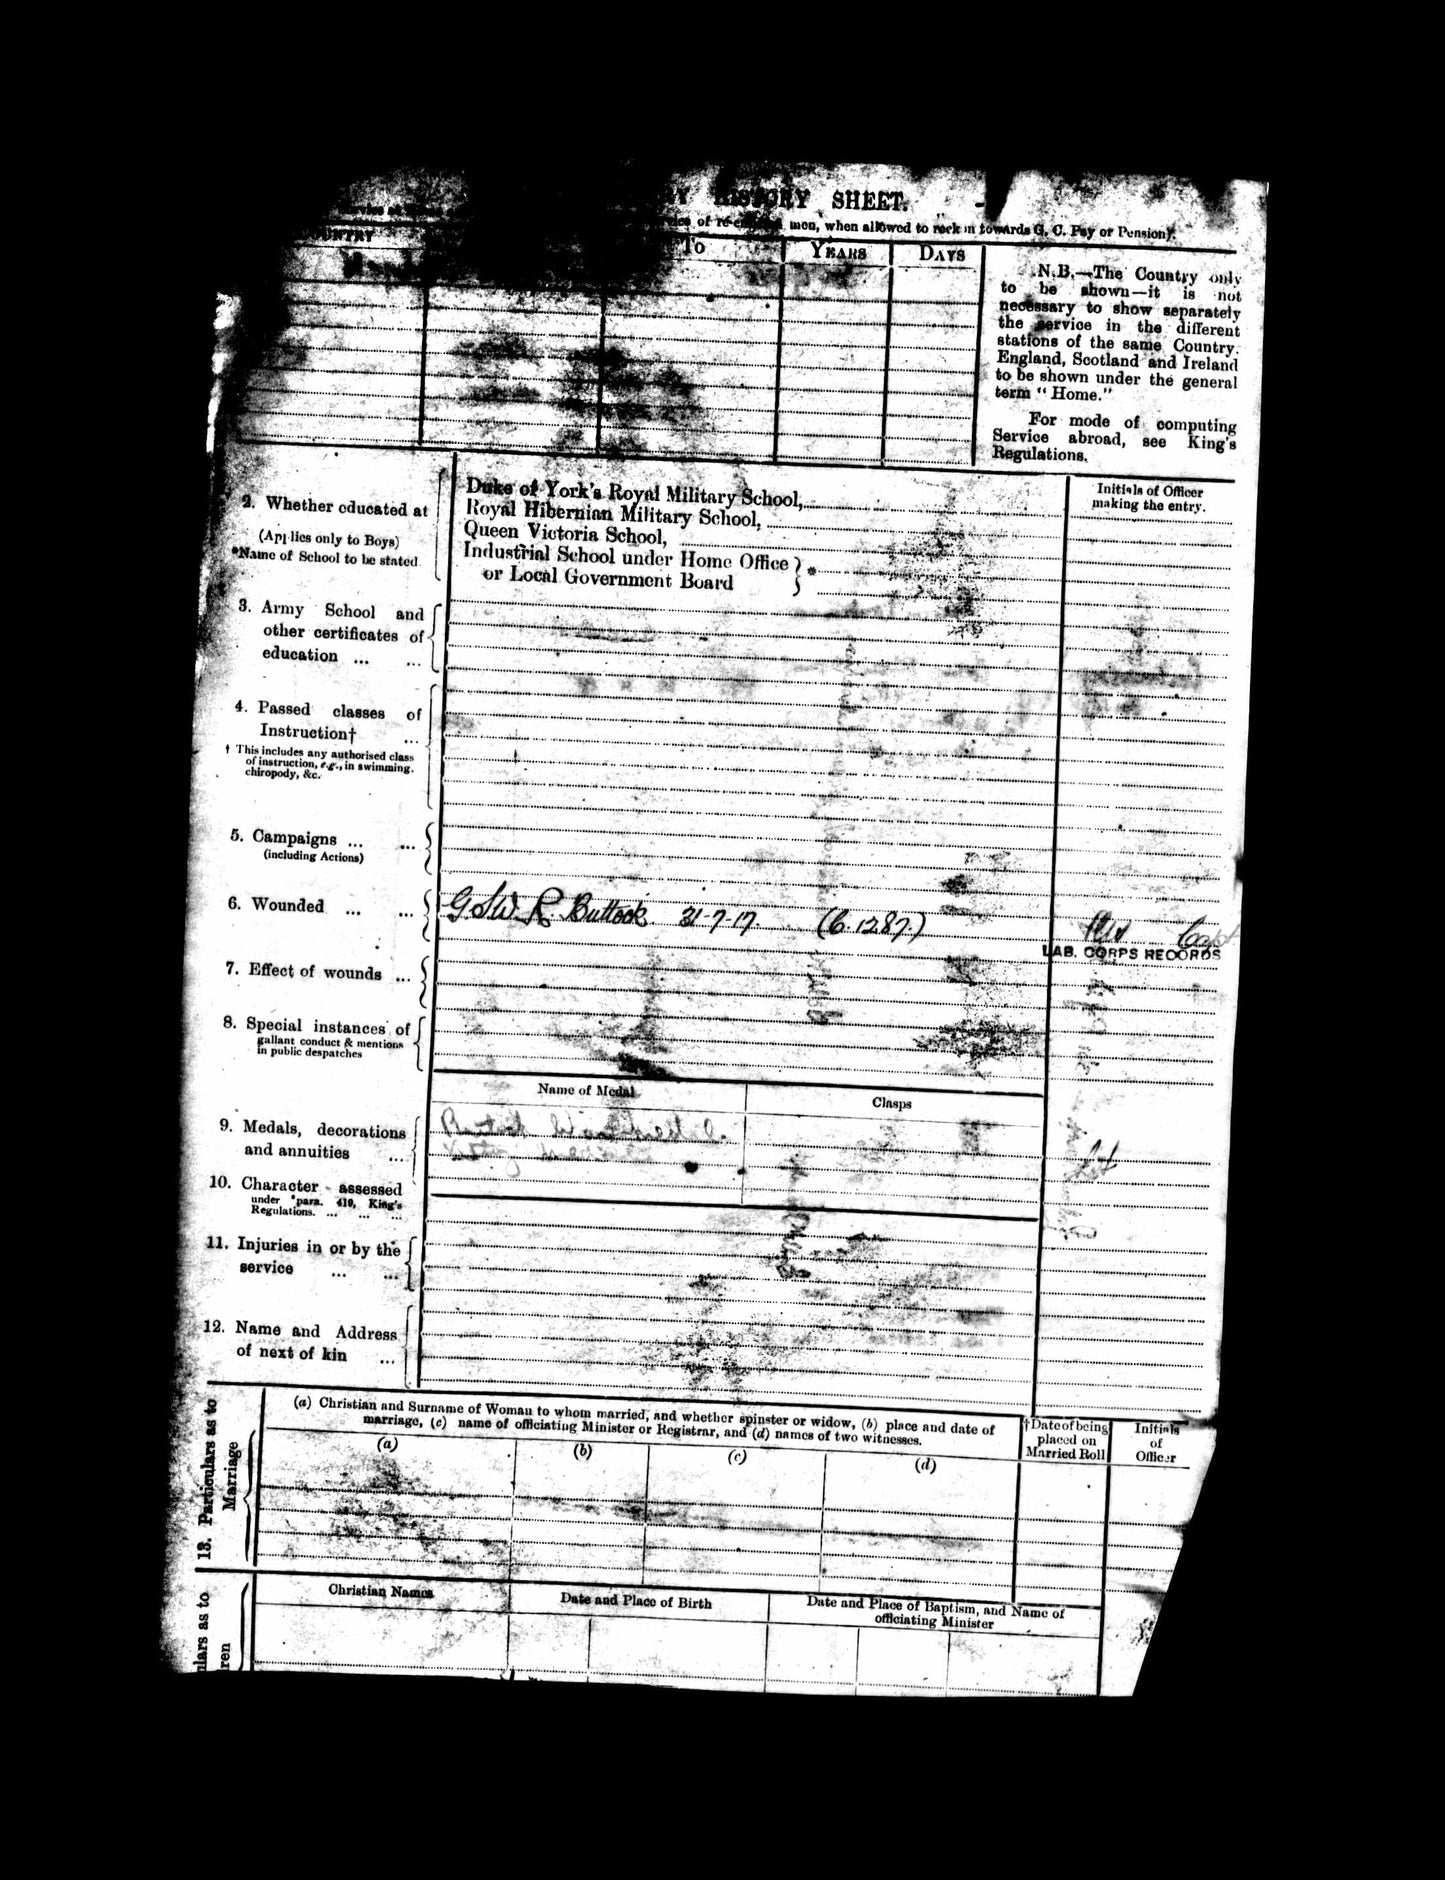 HISTORY SHEET.
of re-enlisted men, when allowed to reckon towards G. C. Pay or Pension).
COUNTRY To YEARS DAYS
N.B.—The Country only
to be shown—it is not
necessary to show separately
the service in the different
stations of the same Country.
England, Scotland and Ireland
to be shown under the general
term "Home."
For mode of computing
Service abroad, see King's
Regulations.
2. Whether educated at
(Applies only to Boys)
*Name of School to be stated
Duke of York's Royal Military School,
Royal Hibernian Military School,
Queen Victoria School,
Industrial School under Home Office } *
or Local Government Board
Initials of Officer
making the entry.
3. Army School and
other certificates of
education ... ...
4. Passed classes of
Instruction† ...
† This includes any authorised class
of instruction, e.g., in swimming,
chiropody, &c.
5. Campaigns ... ...
(including Actions)
6. Wounded ... ... G.S.W. R. Buttock 31-7-17. (C.1287.) Capt
LAB. CORPS RECORDS
7. Effect of wounds ...
8. Special instances of
gallant conduct & mentions
in public despatches
Name of Medal Clasps
9. Medals, decorations
and annuities ...
British War Medal
Victory Medal
10. Character assessed
under para. 419, King's
Regulations. ... ... ...
11. Injuries in or by the
service ... ...
12. Name and Address
of next of kin ...
13. Particulars as to
Marriage
(a) Christian and Surname of Woman to whom married, and whether spinster or widow, (b) place and date of
marriage, (c) name of officiating Minister or Registrar, and (d) names of two witnesses.
(a) (b) (c) (d)
†Date of being
placed on
Married Roll
Initials
of
Officer
Christian Names Date and Place of Birth Date and Place of Baptism, and Name of
officiating Minister